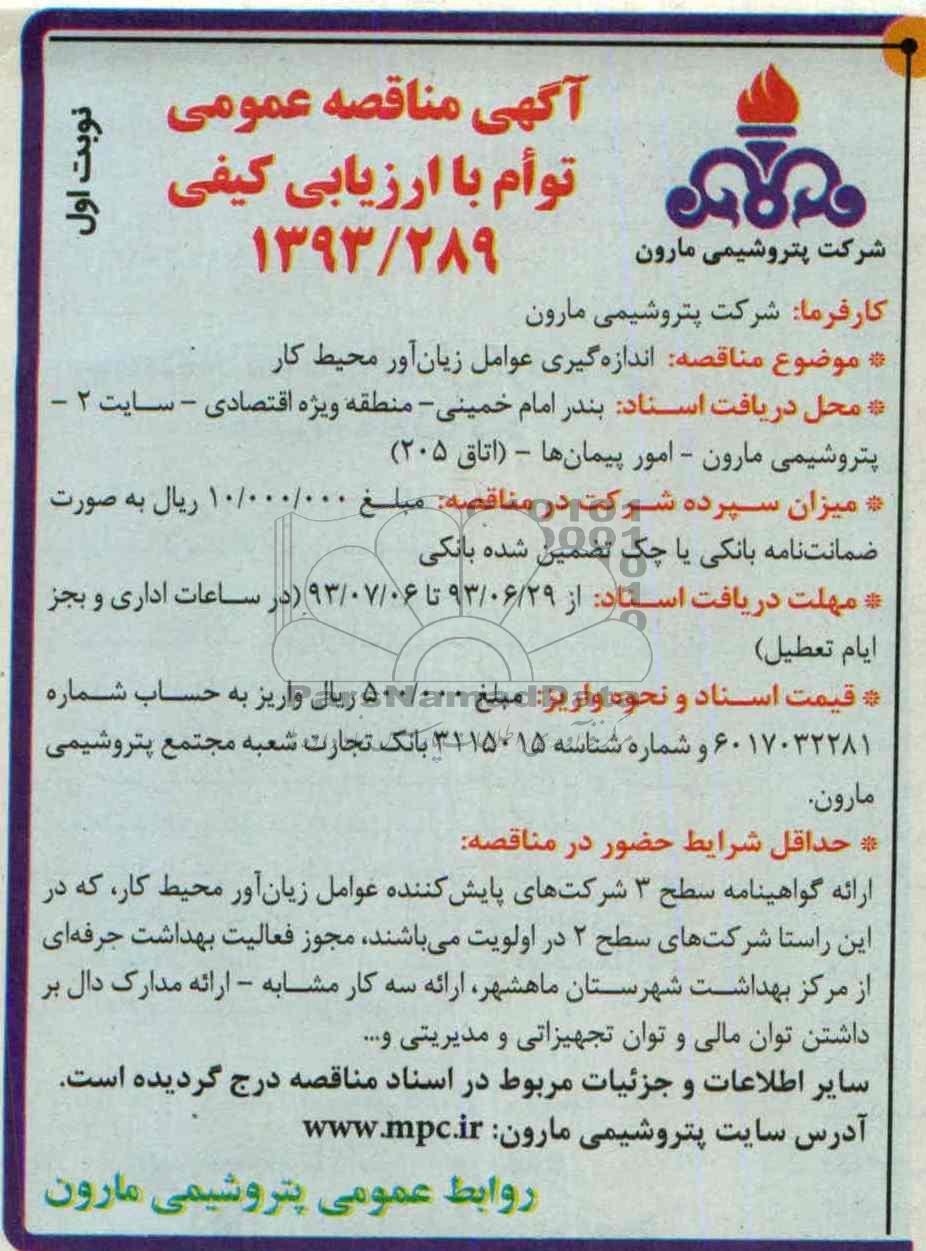 نوبت اول
آگهی مناقصه عمومی
توأم با ارزیابی کیفی
۱۳۹۳/۲۸۹
شرکت پتروشیمی مارون
کارفرما: شرکت پتروشیمی مارون
* موضوع مناقصه: اندازه‌گیری عوامل زیان‌آور محیط کار
* محل دریافت اسناد: بندر امام خمینی- منطقه ویژه اقتصادی - سایت ۲ -
پتروشیمی مارون - امور پیمان‌ها - (اتاق ۲۰۵)
* میزان سپرده شرکت در مناقصه: مبلغ ۱۰/۰۰۰/۰۰۰ ریال به صورت
ضمانت‌نامه بانکی یا چک تضمین شده بانکی
* مهلت دریافت اسناد: از ۹۳/۰۶/۲۹ تا ۹۳/۰۷/۰۶ (در ساعات اداری و بجز
ایام تعطیل)
* قیمت اسناد و نحوه واریز: مبلغ ۵۰۰/۰۰۰ ریال واریز به حساب شماره
۶۰۱۷۰۳۲۲۸۱ و شماره شناسه ۳۱۱۵۰۱۵ بانک تجارت شعبه مجتمع پتروشیمی
مارون.
* حداقل شرایط حضور در مناقصه:
ارائه گواهینامه سطح ۳ شرکت‌های پایش‌کننده عوامل زیان‌آور محیط کار، که در
این راستا شرکت‌های سطح ۲ در اولویت می‌باشند، مجوز فعالیت بهداشت حرفه‌ای
از مرکز بهداشت شهرستان ماهشهر، ارائه سه کار مشابه - ارائه مدارک دال بر
داشتن توان مالی و توان تجهیزاتی و مدیریتی و...
سایر اطلاعات و جزئیات مربوط در اسناد مناقصه درج گردیده است.
آدرس سایت پتروشیمی مارون: www.mpc.ir
روابط عمومی پتروشیمی مارون
ParsNamadData